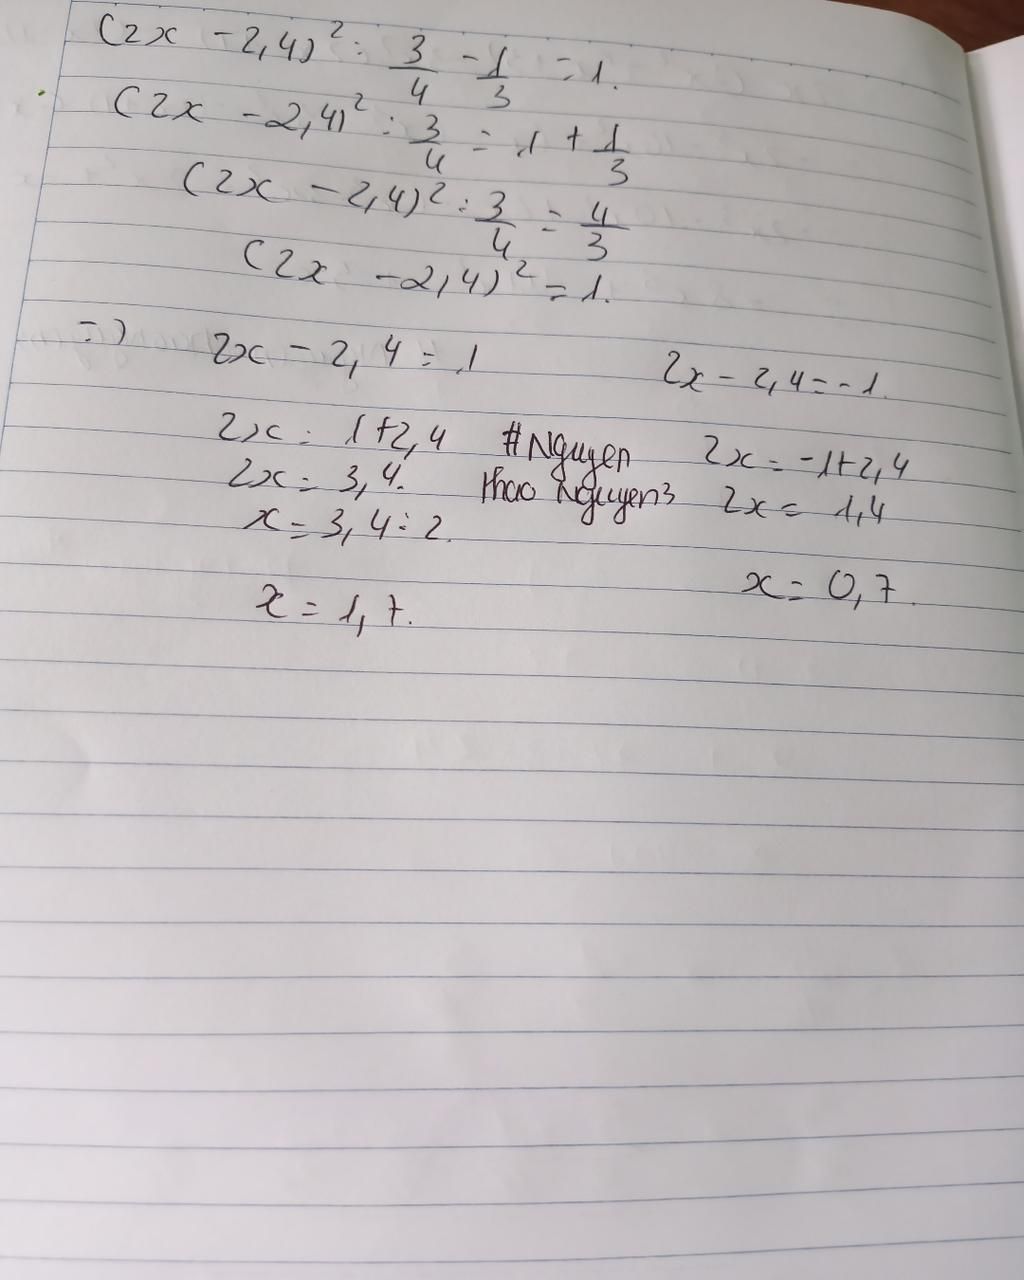 (2x - 2,4)² : 3/4 - 1/3 = 1.
(2x - 2,4)² : 3/4 = 1 + 1/3
(2x - 2,4)² : 3/4 = 4/3
(2x - 2,4)² = 1.
=> 2x - 2,4 = 1
2x = 1+2,4
2x = 3,4.
x = 3,4 : 2.
x = 1,7.
#Nguyen
thao Nguyen3
2x - 2,4 = -1.
2x = -1+2,4
2x = 1,4
x = 0,7.